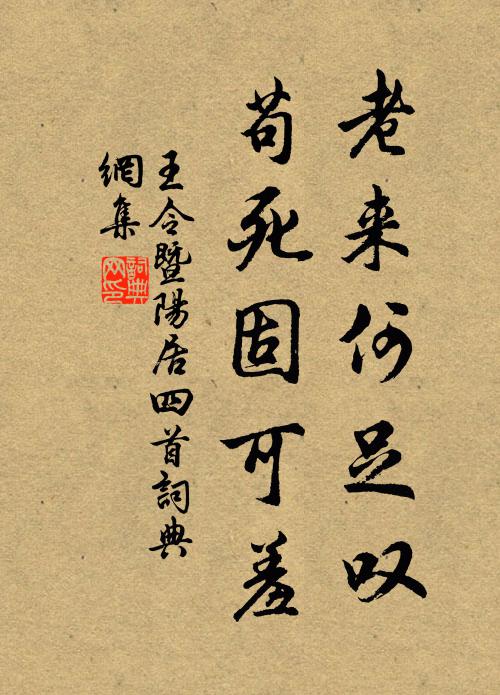 老来何足叹
苟死固可羞
王令暨陽居四首詞典
網集
詞典網印